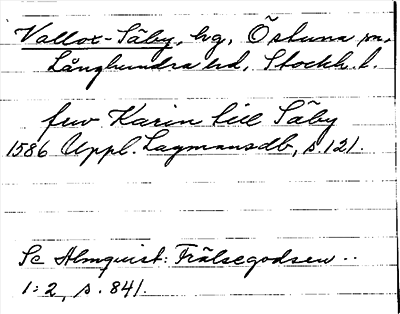 Vallox-Säby, hg, Östuna sn,
Långhundra hd, Stockh. l.
fru Karin till Säby
1586 Uppl. Lagmansdb, s. 121.
Se Almquist: Frälsegodsen ..
1:2, s. 841.